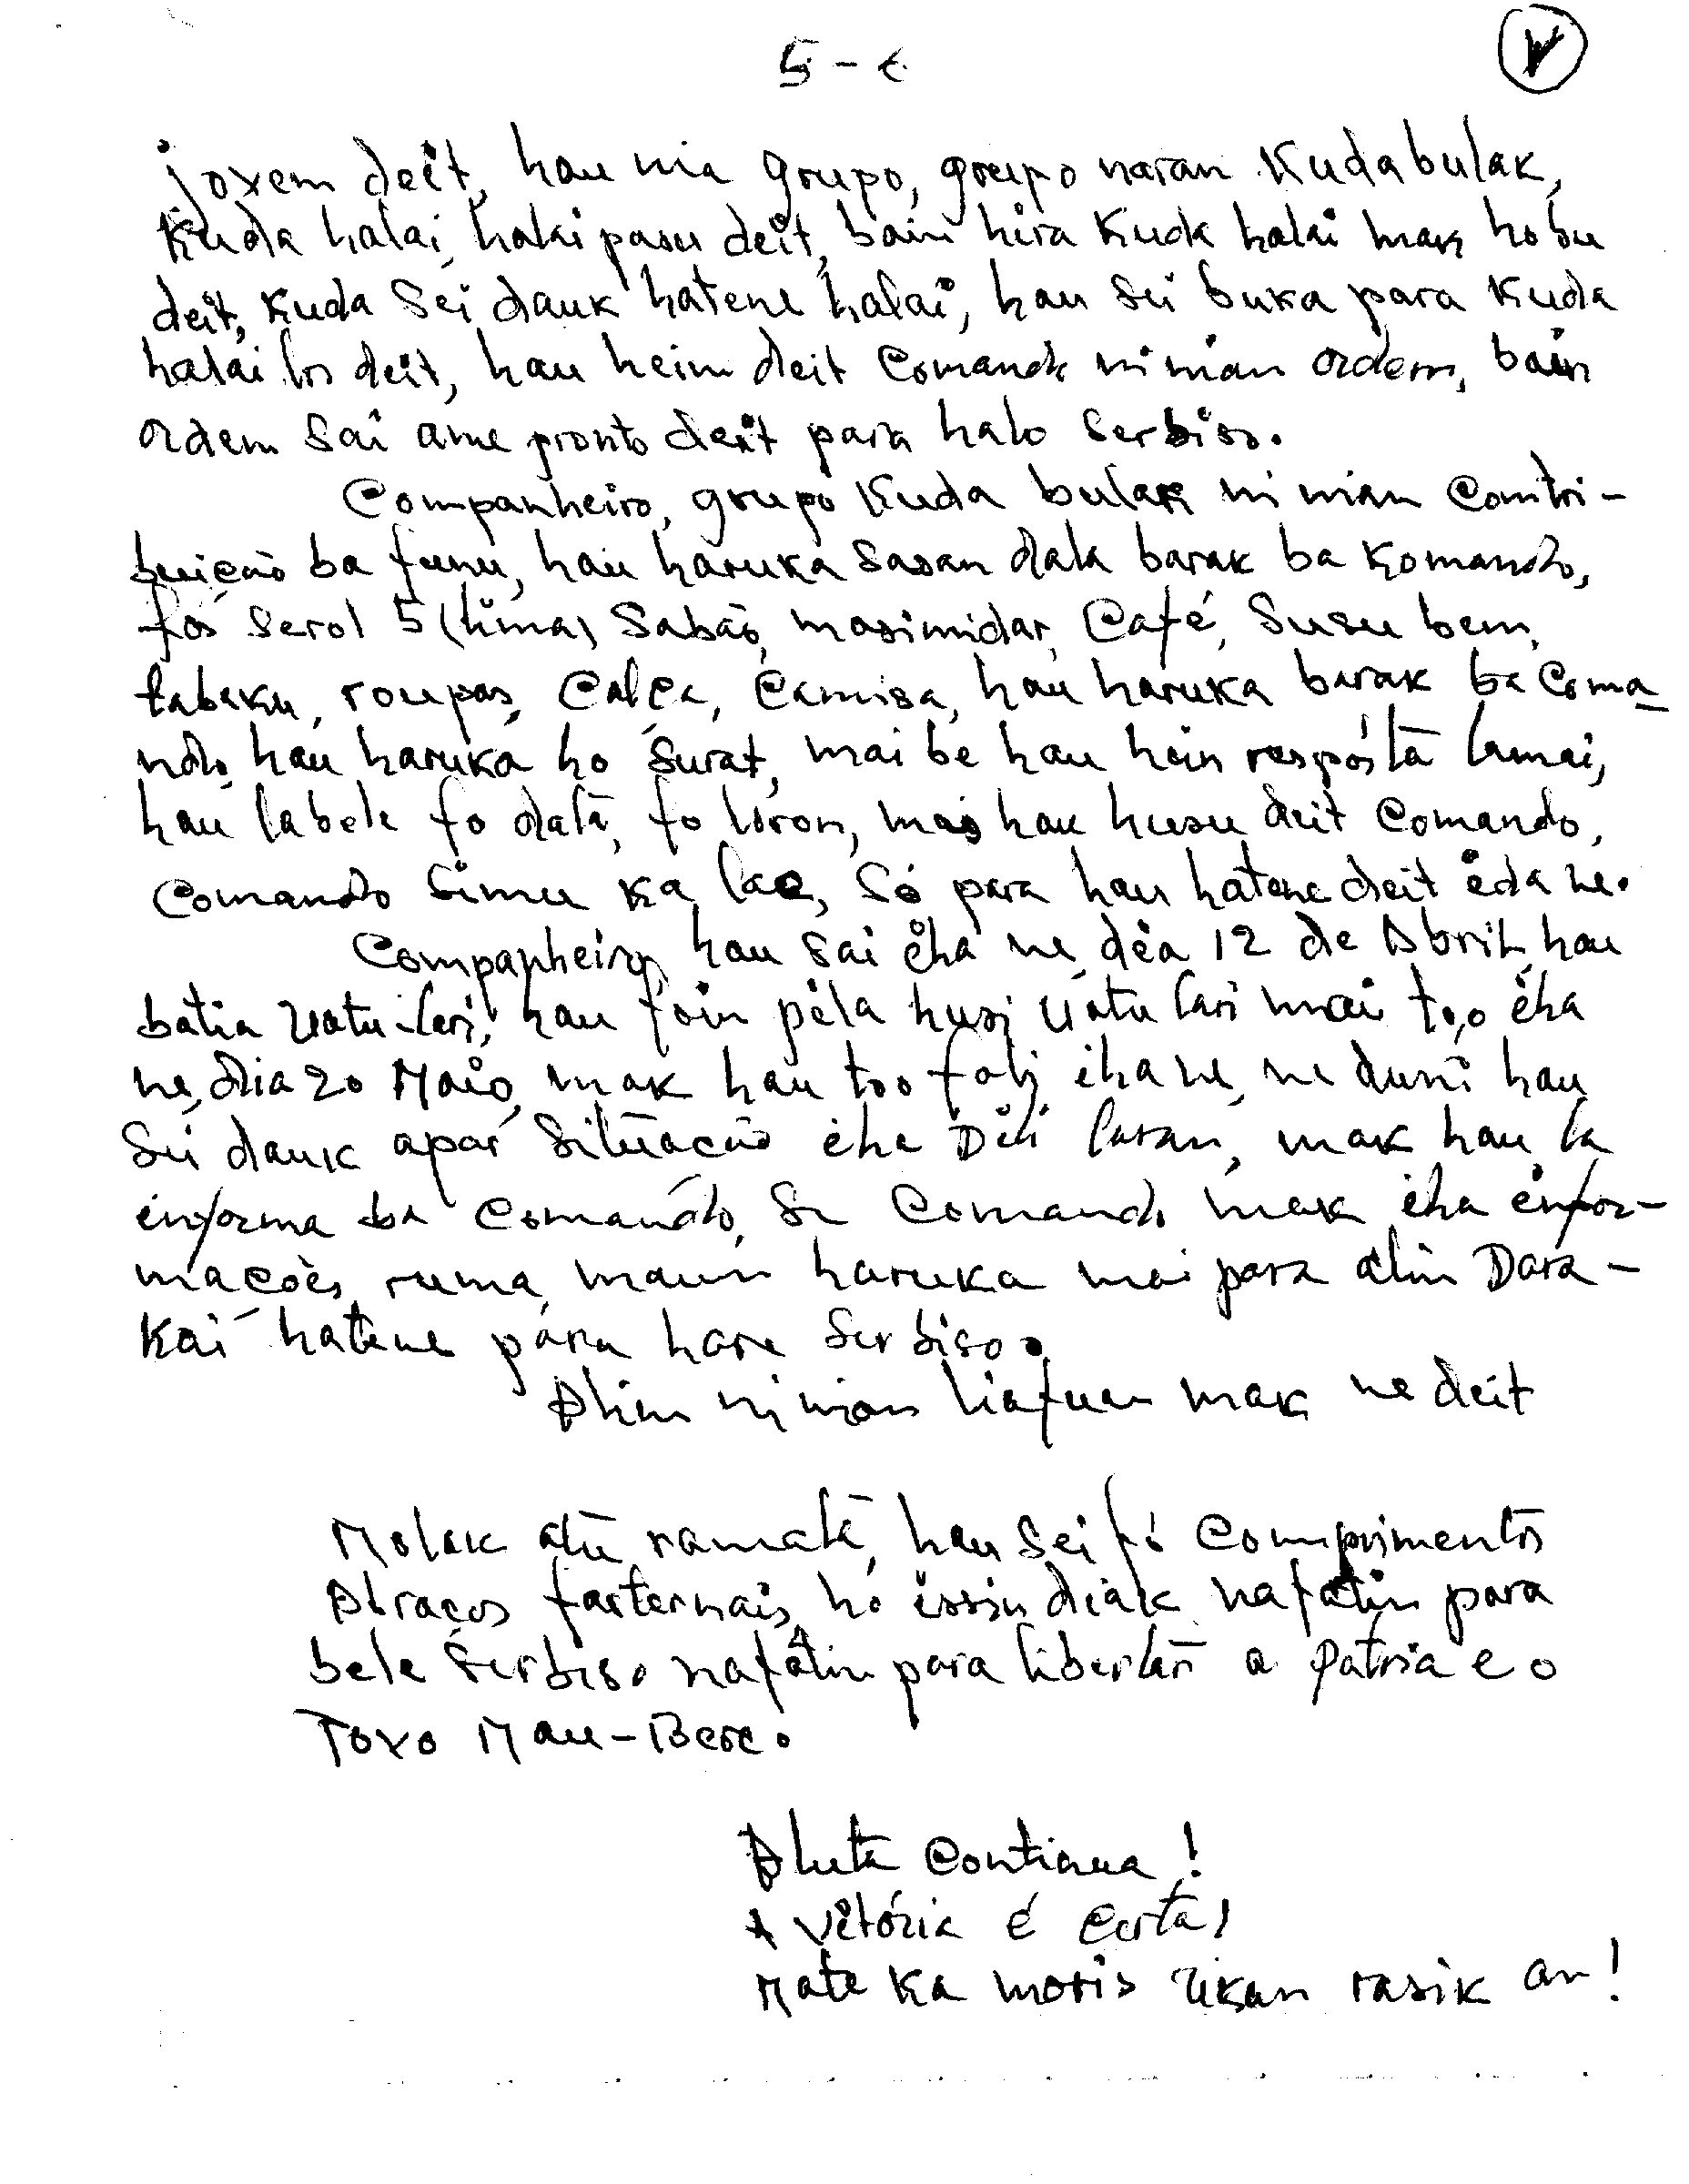 5 - c
joxem deit, hau nia grupo, grupo naran Kuda bulak,
Kuda halai, halai pasu deit, bain hira Kuda halai mak ho su
deit, Kuda Sei dauk hatene halai, hau sei buka para Kuda
halai los deit, hau hein deit Comando ninian ordem, bain
ordem sai ame pronto deit para halo serbiso.
Companheiro, grupo Kuda bulak ninian Comtri-
buição ba funu, hau haruka sasan dala barak ba Komando,
fos serol 5 (lima) Sabão, masimidar, Café, Susu bem,
tabaku, roupas, Calça, Camisa, hau haruka barak ba Coma-
ndo, hau haruka ho surat, mai be hau hein respósta lamai,
hau labele fo data, fo loron, mas hau husu deit Comando,
Comando simu ka lae, só para hau hatene deit ida ne.
Companheiro, hau sai iha ne dia 12 de Abril, hau
batia Uatu-lari, hau foin pila husi Uatu lari mai to,o iha
ne, dia 20 Maio, mak hau too fali iha ne, ne duni hau
sei dauk apar situação iha Dili laran, mak hau la
informa ba Comando, Se Comando mak iha infor-
mações ruma, maun haruka mai para alin Dara-
Kai hatene para hare serbiso.
Alin ninian liafuan mak ne deit
Molok atu ramata, hau sei fó Comprimentos
Abraços farternais, ho issin diak nafatin para
bele serbiso nafatin para libertar a Pátria e o
Povo Mau-Bere.
Aluta Continua!
A Vitória é Certa!
Mate Ka moris Ukun rasik an!